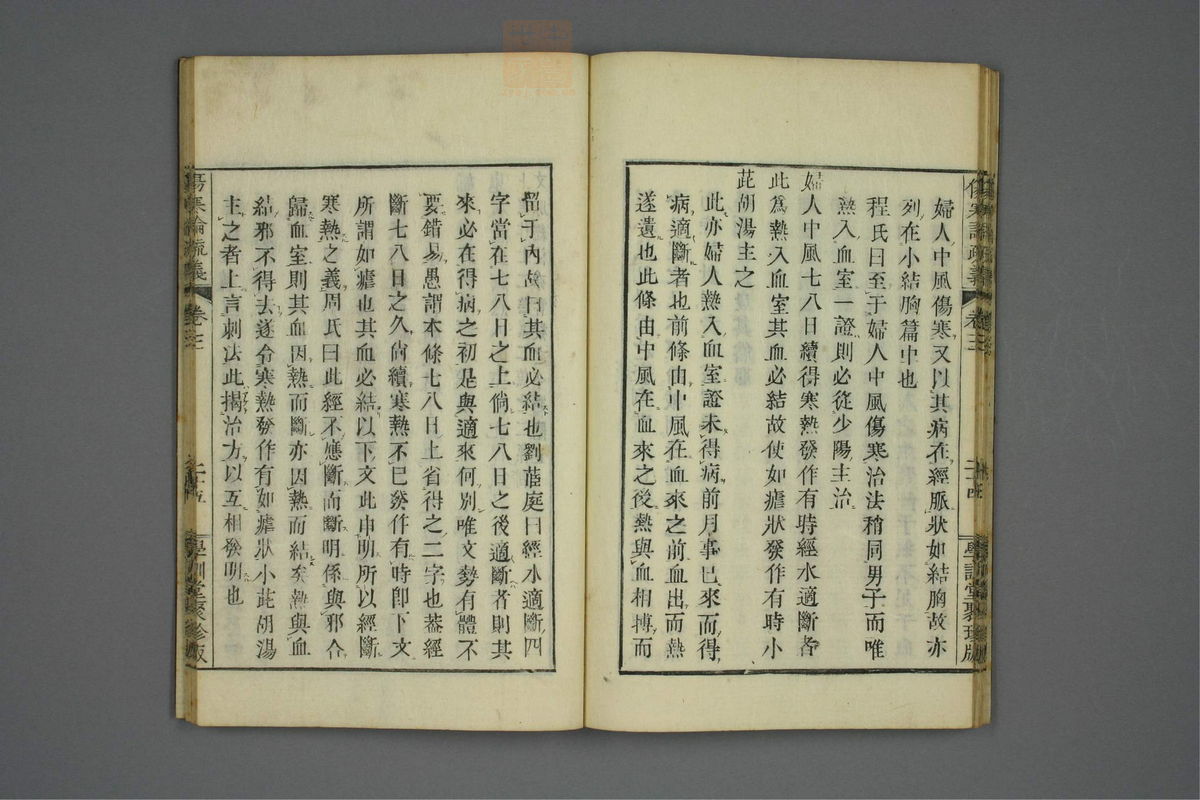 婦人中風傷寒又以其病在經脈狀如結胸故亦
列在小結胸篇中也
程氏曰至于婦人中風傷寒治法稍同男子而唯
熱入血室一證則必從少陽主治
婦人中風七八日續得寒熱發作有時經水適斷者
此爲熱入血室其血必結故使如瘧狀發作有時小
茈胡湯主之
此亦婦人熱入血室證未得病前月事已來而得
病適斷者也前條由中風在血來之前血出而熱
遂遺也此條由中風在血來之後熱與血相搏而
留于內故曰其血必結也劉茝庭曰經水適斷四
字當在七八日之上倘七八日之後適斷者則其
來必在得病之初是與適來何別唯文勢有體不
要錯易愚謂本條七八日上省得之二字也蓋經
斷七八日之久尙續寒熱不已發作有時卽下文
所謂如瘧也其血必結以下文此申明所以經斷
寒熱之義周氏曰此經不應斷而斷明係與邪合
歸血室則其血因熱而斷亦因熱而結矣熱與血
結邪不得去遂令寒熱發作有如瘧狀小茈胡湯
主之者上言刺法此揭治方以互相發明也
傷寒論疏義
卷三
二十五
學訓堂聚珍版